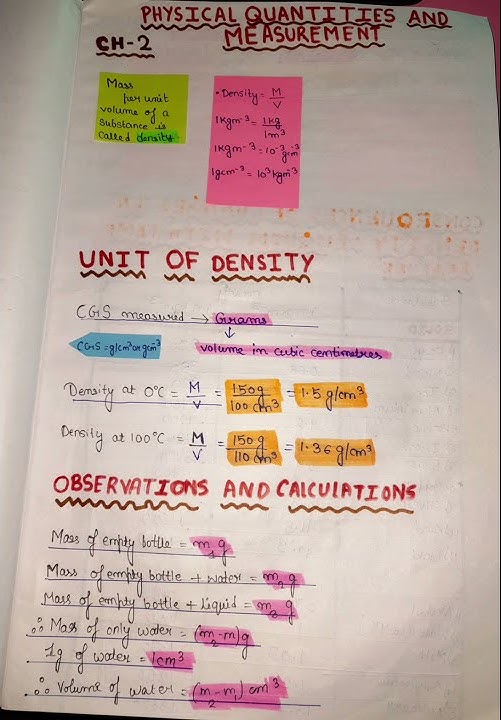 PHYSICAL QUANTITIES AND
MEASUREMENT
CH-2
Mass
per unit
volume of a
substance is
called density.
• Density = M/V
1Kgm⁻³ = 1Kg/1m³
1Kgm⁻³ = 10⁻³ gcm⁻³
1gcm⁻³ = 10³ Kgm⁻³
UNIT OF DENSITY
CGS measured → Grams
↓
CGS = g/cm³ or gcm³
volume in cubic centimetres
Density at 0°C = M/V = 150g/100 cm³ = 1.5 g/cm³
Density at 100°C = M/V = 150g/110 cm³ = 1.36 g/cm³
OBSERVATIONS AND CALCULATIONS
Mass of empty bottle = m₁g
Mass of empty bottle + water = m₂g
Mass of empty bottle + Liquid = m₃g
∴ Mass of only water = (m₂-m)g
1g of water = 1cm³
∴ Volume of water = (m₂-m) cm³